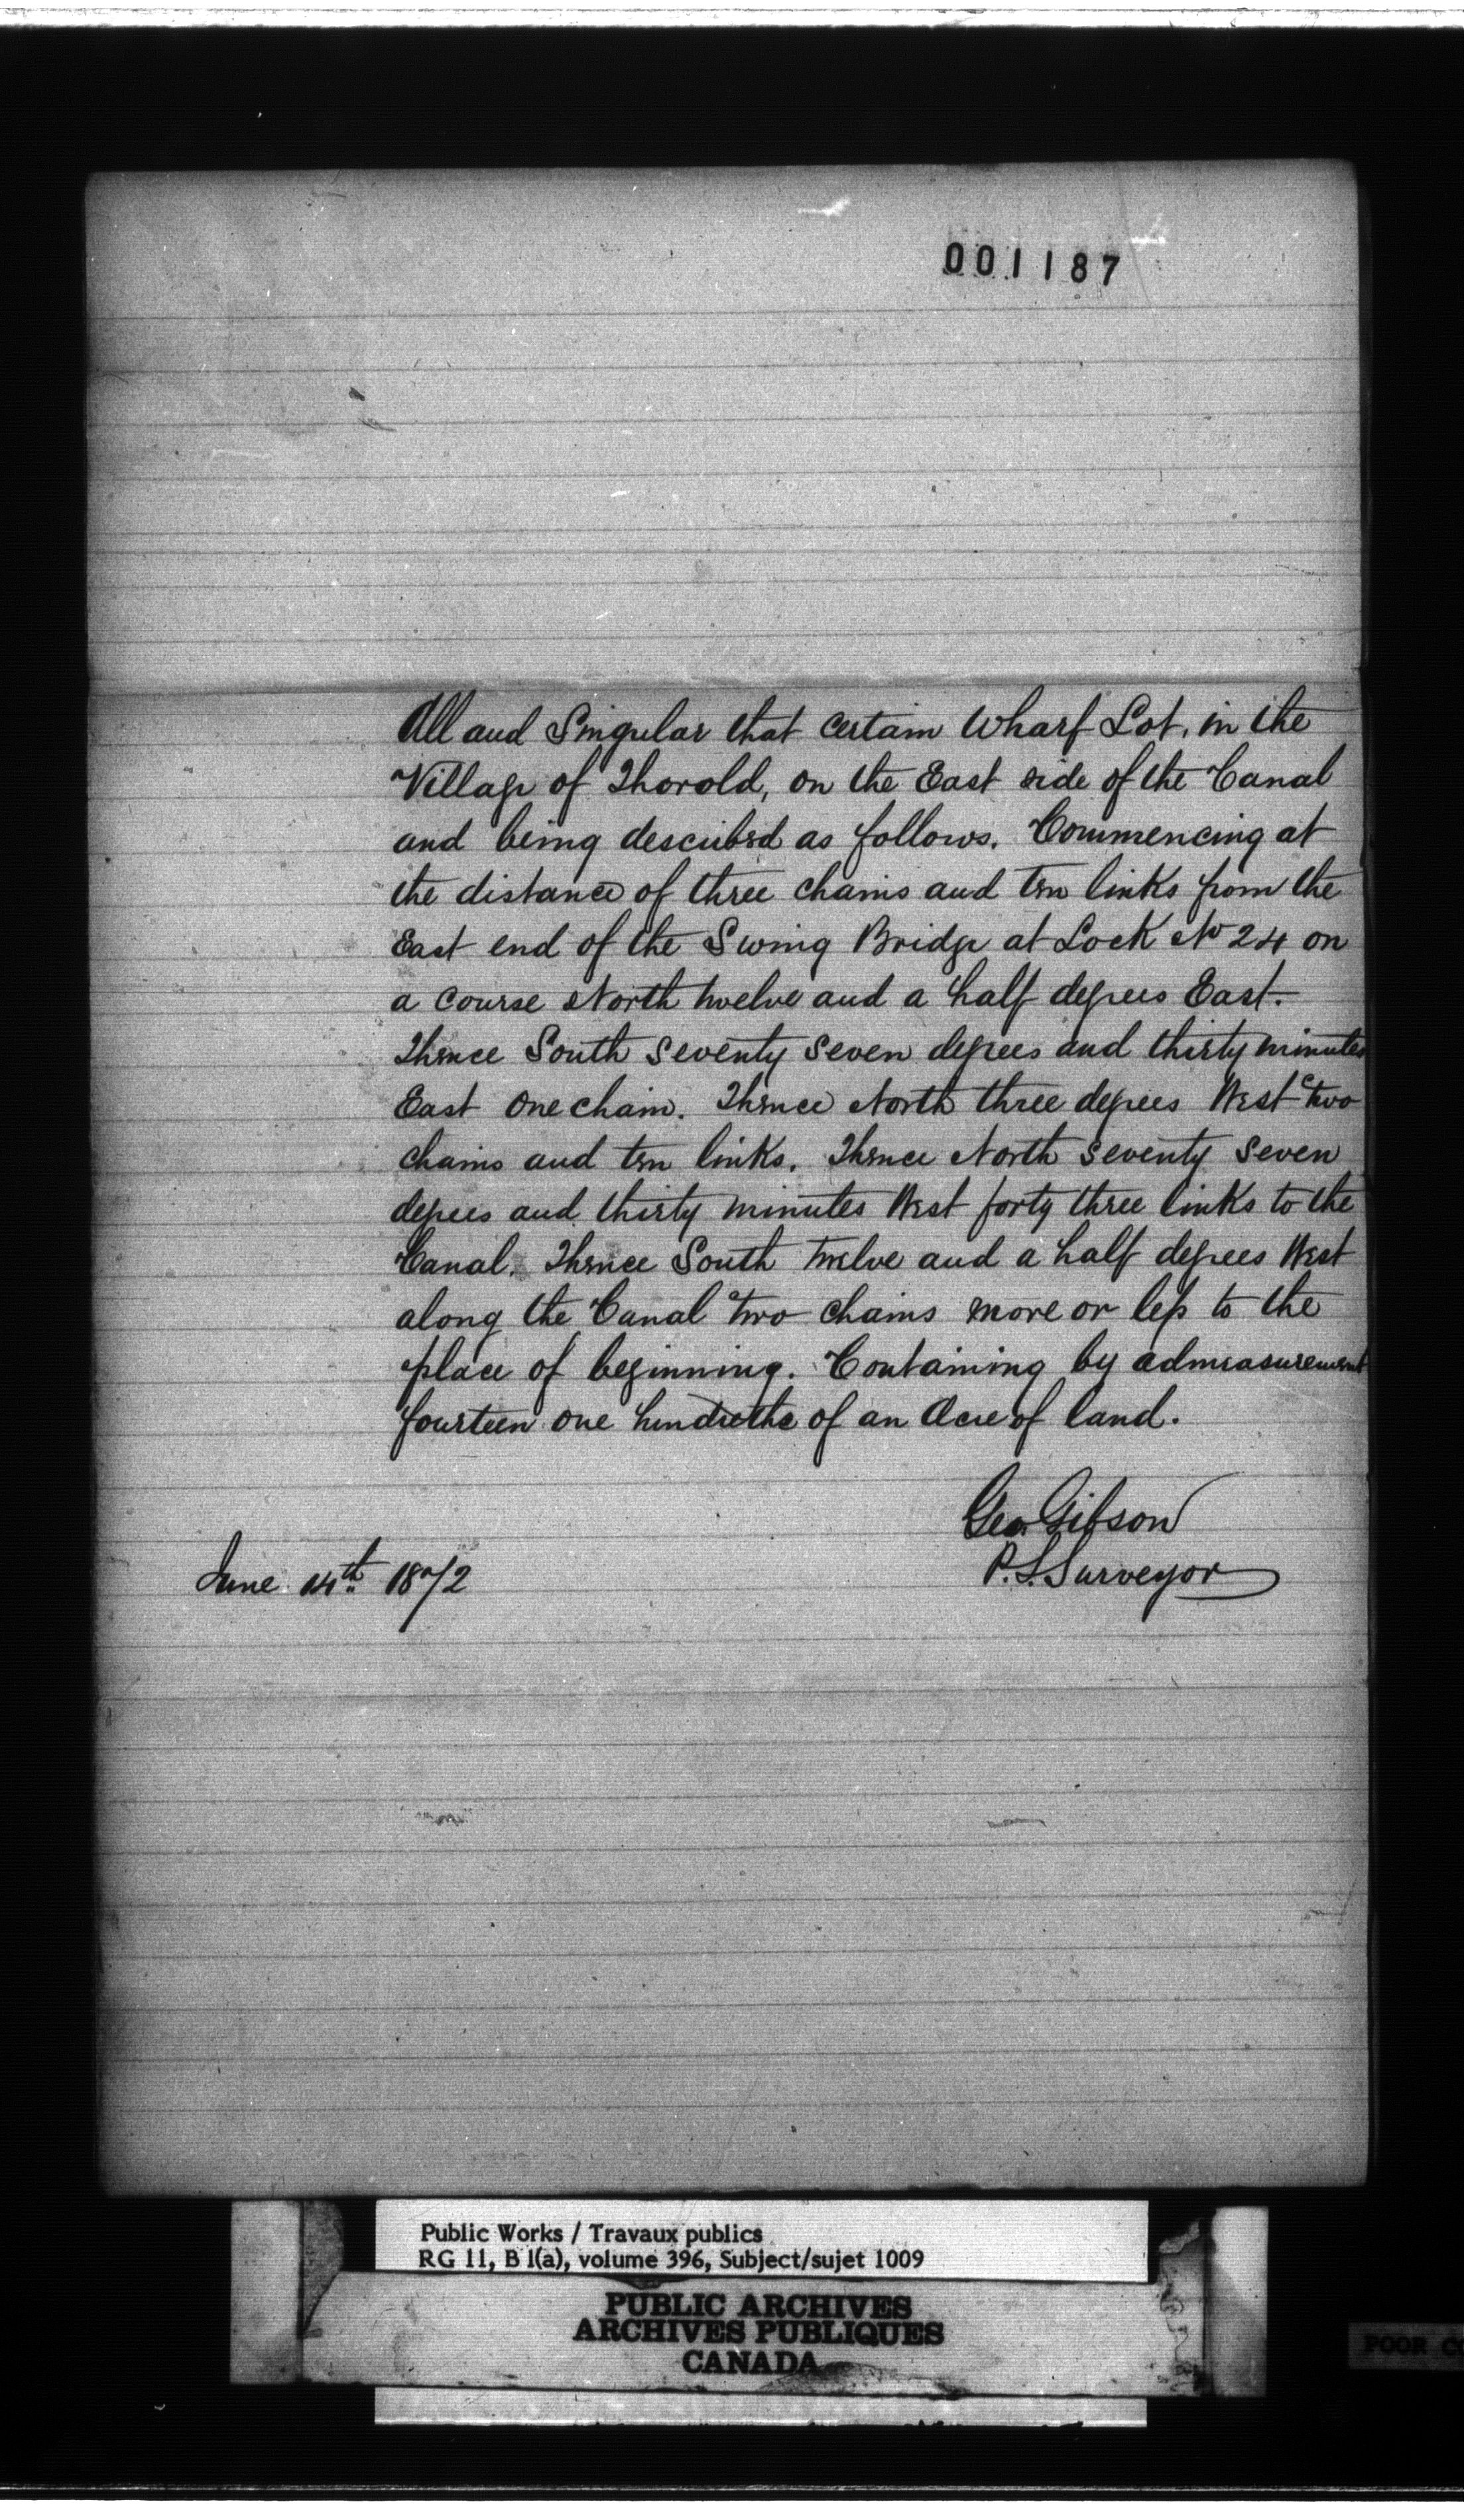 001187
All and Singular that certain Wharf Lot, in the
Village of Thorold, on the East side of the Canal
and being described as follows. Commencing at
the distance of three chains and ten links from the
East end of the Swing Bridge at Lock No 24 on
a course North twelve and a half degrees East.
Thence South seventy seven degrees and thirty minutes
East one chain. Thence North three degrees West two
chains and ten links. Thence North seventy seven
degrees and thirty minutes West forty three links to the
Canal. Thence South twelve and a half degrees West
along the Canal two chains more or less to the
place of beginning. Containing by admeasurement
fourteen one hundreths of an Acre of land.
Geo. Gibson
P. L. Surveyor
June 14th 1872
Public Works / Travaux publics
RG 11, B 1(a), volume 396, Subject/sujet 1009
PUBLIC ARCHIVES
ARCHIVES PUBLIQUES
CANADA
POOR CO